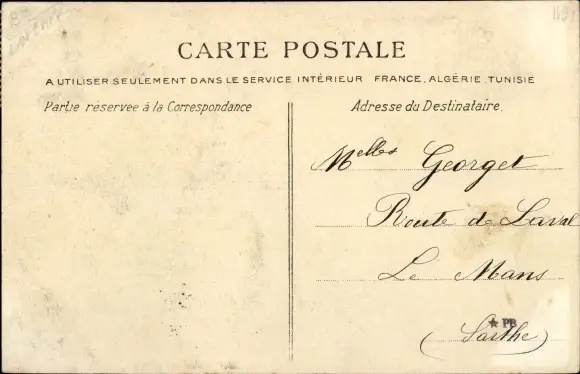 CARTE POSTALE
A UTILISER SEULEMENT DANS LE SERVICE INTÉRIEUR FRANCE, ALGÉRIE, TUNISIE
Partie réservée à la Correspondance
Adresse du Destinataire.
Melles Georget
Route de Laval
Le Mans
★ PB
(Sarthe)